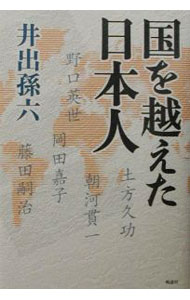 国を越えた
日本人
井出孫六
野口英世
土方久功
岡田嘉子
朝河貫一
藤田嗣治